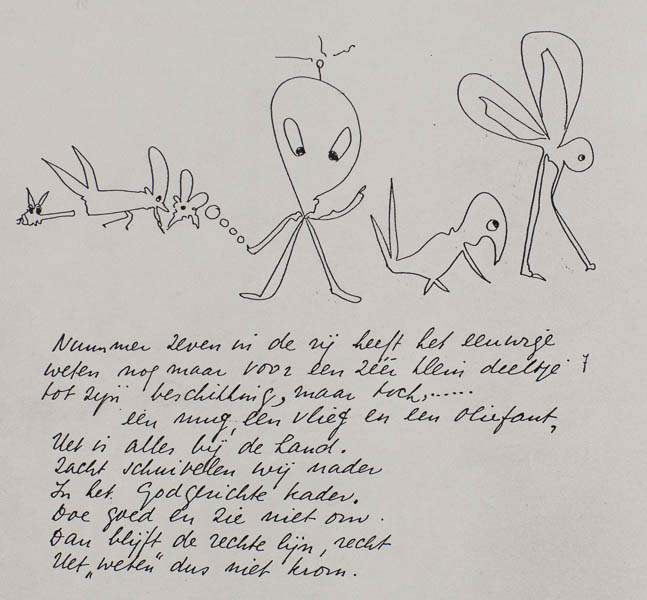 Nummer zeven in de rij heeft het eeuwige
weten nog maar voor een zéér klein deeltje 7
tot zijn beschikking, maar toch,......
een mug, een vlieg en een oliefant,
Het is alles bij de hand.
Zacht schuivelen wij nader
In het Godgerichte kader.
Doe goed en zie niet om.
Dan blijft de rechte lijn, recht
Het „weten" dus niet krom.